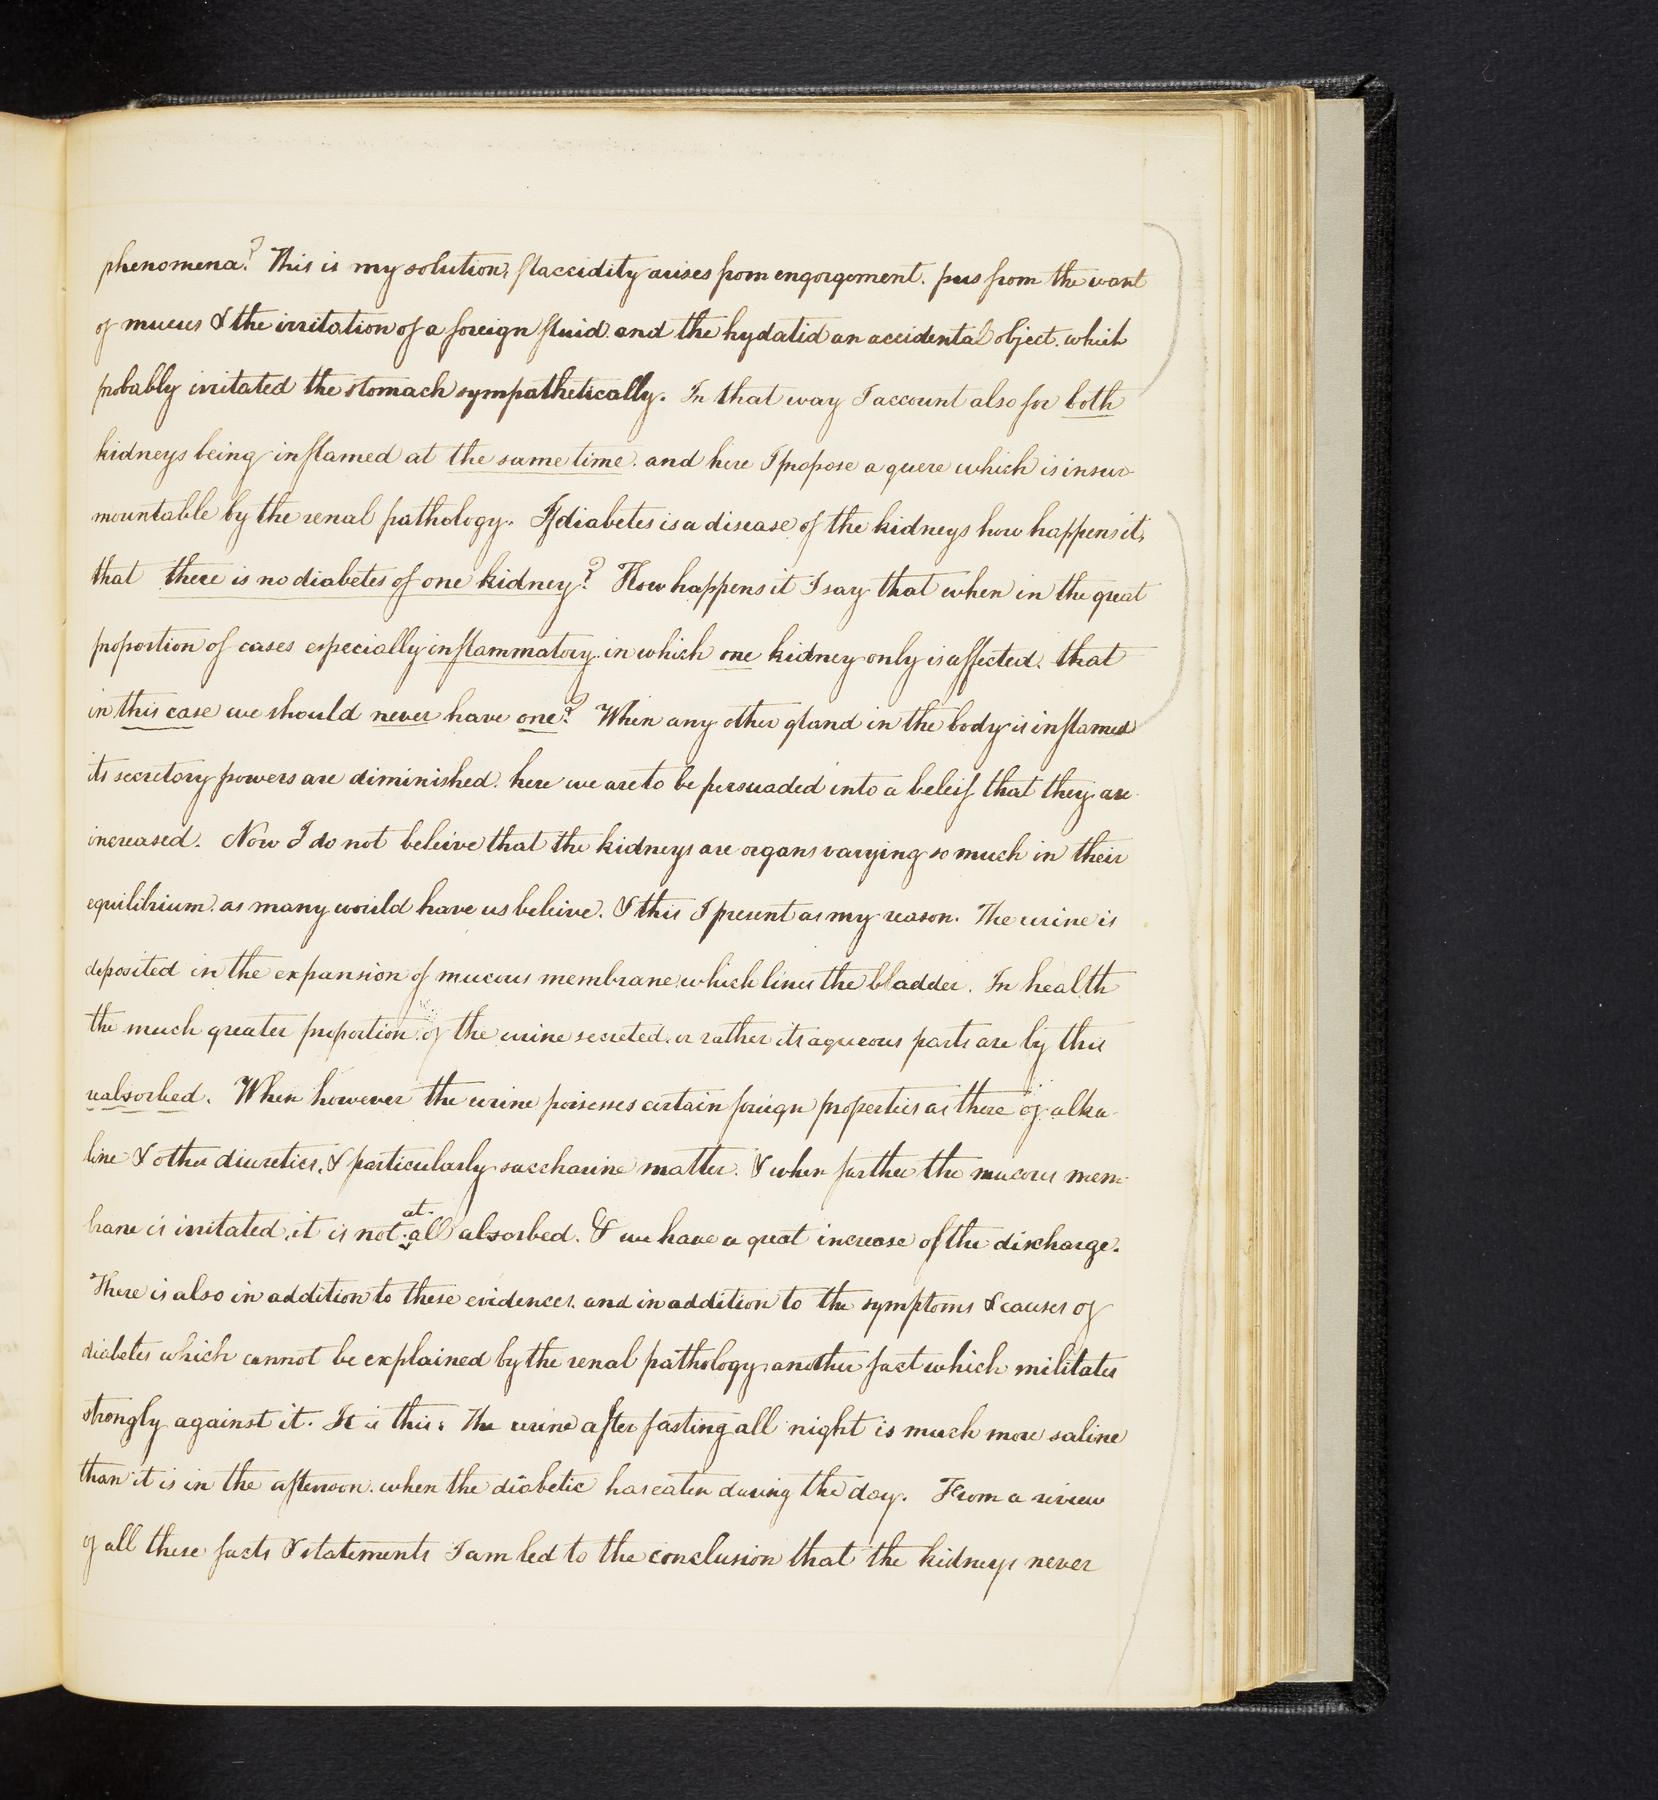 phenomena? This is my solution, flaccidity arises from engorgement. pus from the want
of mucus & the irritation of a foreign fluid. and the hydatid an accidental object. which
probably irritated the stomach sympathetically. In that way I account also for both
kidneys being inflamed at the same time. and here I propose a quere which is insur-
mountable by the renal pathology. If diabetes is a disease of the kidneys how happens it,
that there is no diabetes of one kidney? How happens it I say that when in the great
proportion of cases especially inflammatory. in which one kidney only is affected. that
in this case we should never have one? When any other gland in the body is inflamed
its secretory powers are diminished. here we are to be persuaded into a beleif that they are
increased. Now I do not beleive that the kidneys are organs varying so much in their
equilibrium. as many would have us beleive. & this I present as my reason. The urine is
deposited in the expansion of mucous membrane which lines the bladder. In health
the much greater proportion of the urine secreted. or rather its aqueous parts are by this
reabsorbed. When however the urine possesses certain foreign properties as those of alka-
line & other diuretics, & particularly saccharine matter. & when further the mucous mem-
brane is irritated, it is not at all absorbed. & we have a great increase of the discharge.
There is also in addition to these evidences. and in addition to the symptoms & causes of
diabetes which cannot be explained by the renal pathology, another fact which militates
strongly against it. It is this: The urine after fasting all night is much more saline
than it is in the afternoon. when the diabetic has eaten during the day. From a review
of all these facts & statements I am led to the conclusion that the kidneys never